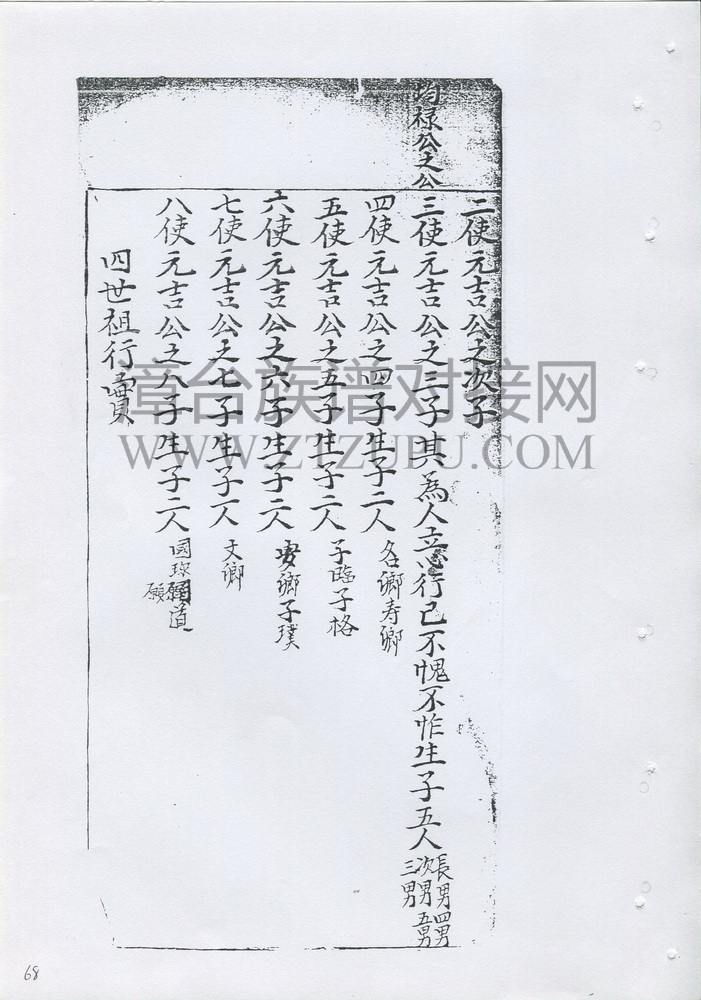 均禄公之公
二使元吉公之次子
三使元吉公之三子其為人立心行己不愧不怍生子五人
長男四男
次男五男
三男
四使元吉公之四子生子二人 名卿寿卿
五使元吉公之五子生子二人 子臨子格
六使元吉公之六子生子二人 安卿子璞
七使元吉公之七子生子一人 文卿
八使元吉公之八子生子二人 國珍願道
願
四世祖行實
漳台族谱对接网
WWW.ZTZUPU.COM
68